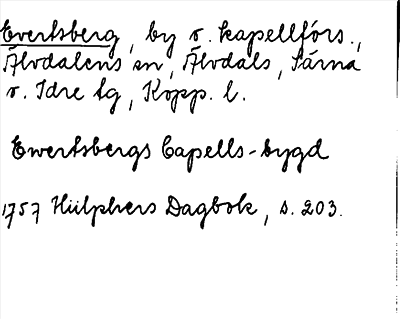 Evertsberg, by o. kapellförs.,
Älvdalens sn, Älvdals, Särna
o. Idre tg, Kopp. l.
Ewertsbergs Capells-bygd
1757 Hülphers Dagbok, s. 203.